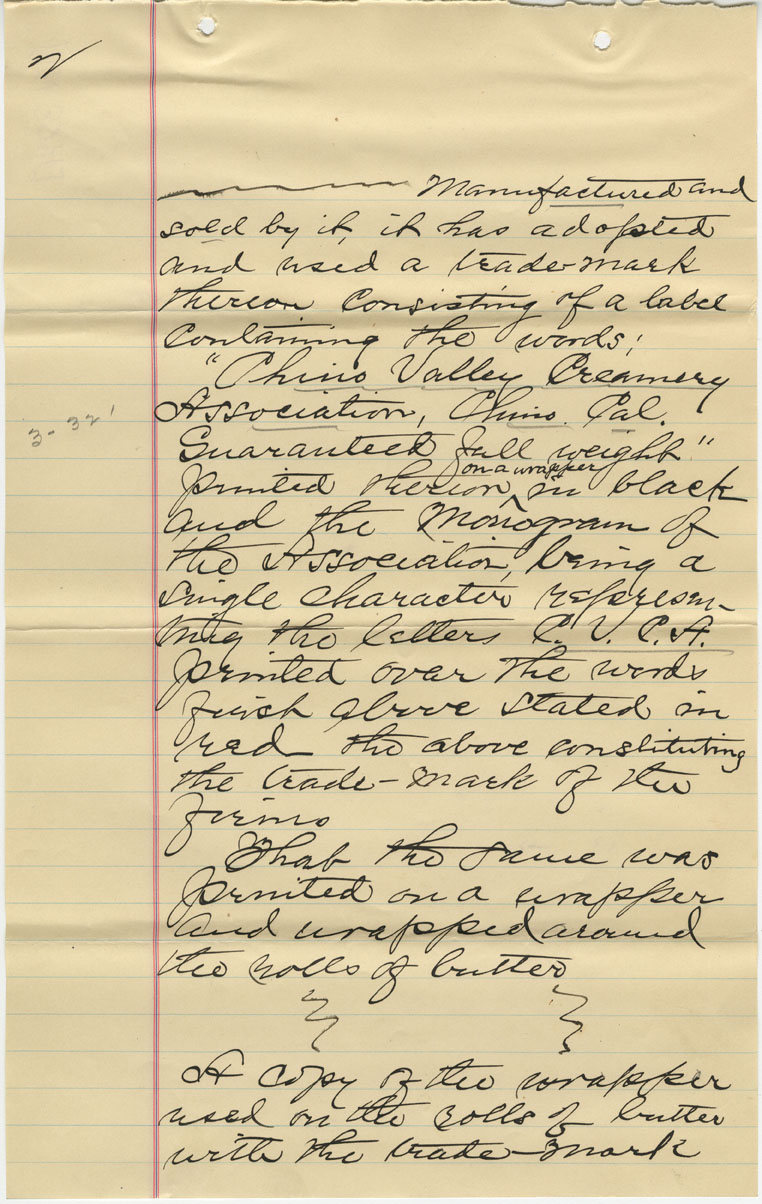 2
Manufactured and
sold by it, it has adopted
and used a trade-mark
thereon consisting of a label
containing the words;
"Chino Valley Creamery
Association, Chino. Cal.
3-32'
Guaranteed full weight"
on a wrapper
printed thereon, ^ in black
and the Monogram of
the Association, being a
single character represen-
ting the letters C. V. C. A.
printed over the words
first above stated in
red the above constituting
the trade-mark of the
firm
That the same was
printed on a wrapper
and wrapped around
the rolls of butter
A copy of the wrapper
used on the rolls of butter
with the trade-mark